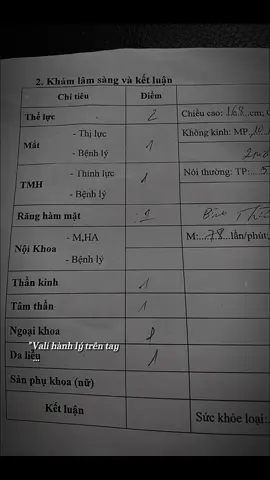 2. Khám lâm sàng và kết luận
Chỉ tiêu Điểm
Thể lực 2 Chiều cao: 168 cm;
Mắt - Thị lực 1 Không kính: MP 10
- Bệnh lý
TMH - Thính lực 1 Nói thường: TP:....5
- Bệnh lý
Răng hàm mặt 1
Nội Khoa - M,HA M:....78...lần/phút;
- Bệnh lý
Thần kinh 1
Tâm thần 1
Ngoại khoa
"Vali hành lý trên tay
...
Da liễu 1
Sản phụ khoa (nữ)
Kết luận Sức khỏe loại: